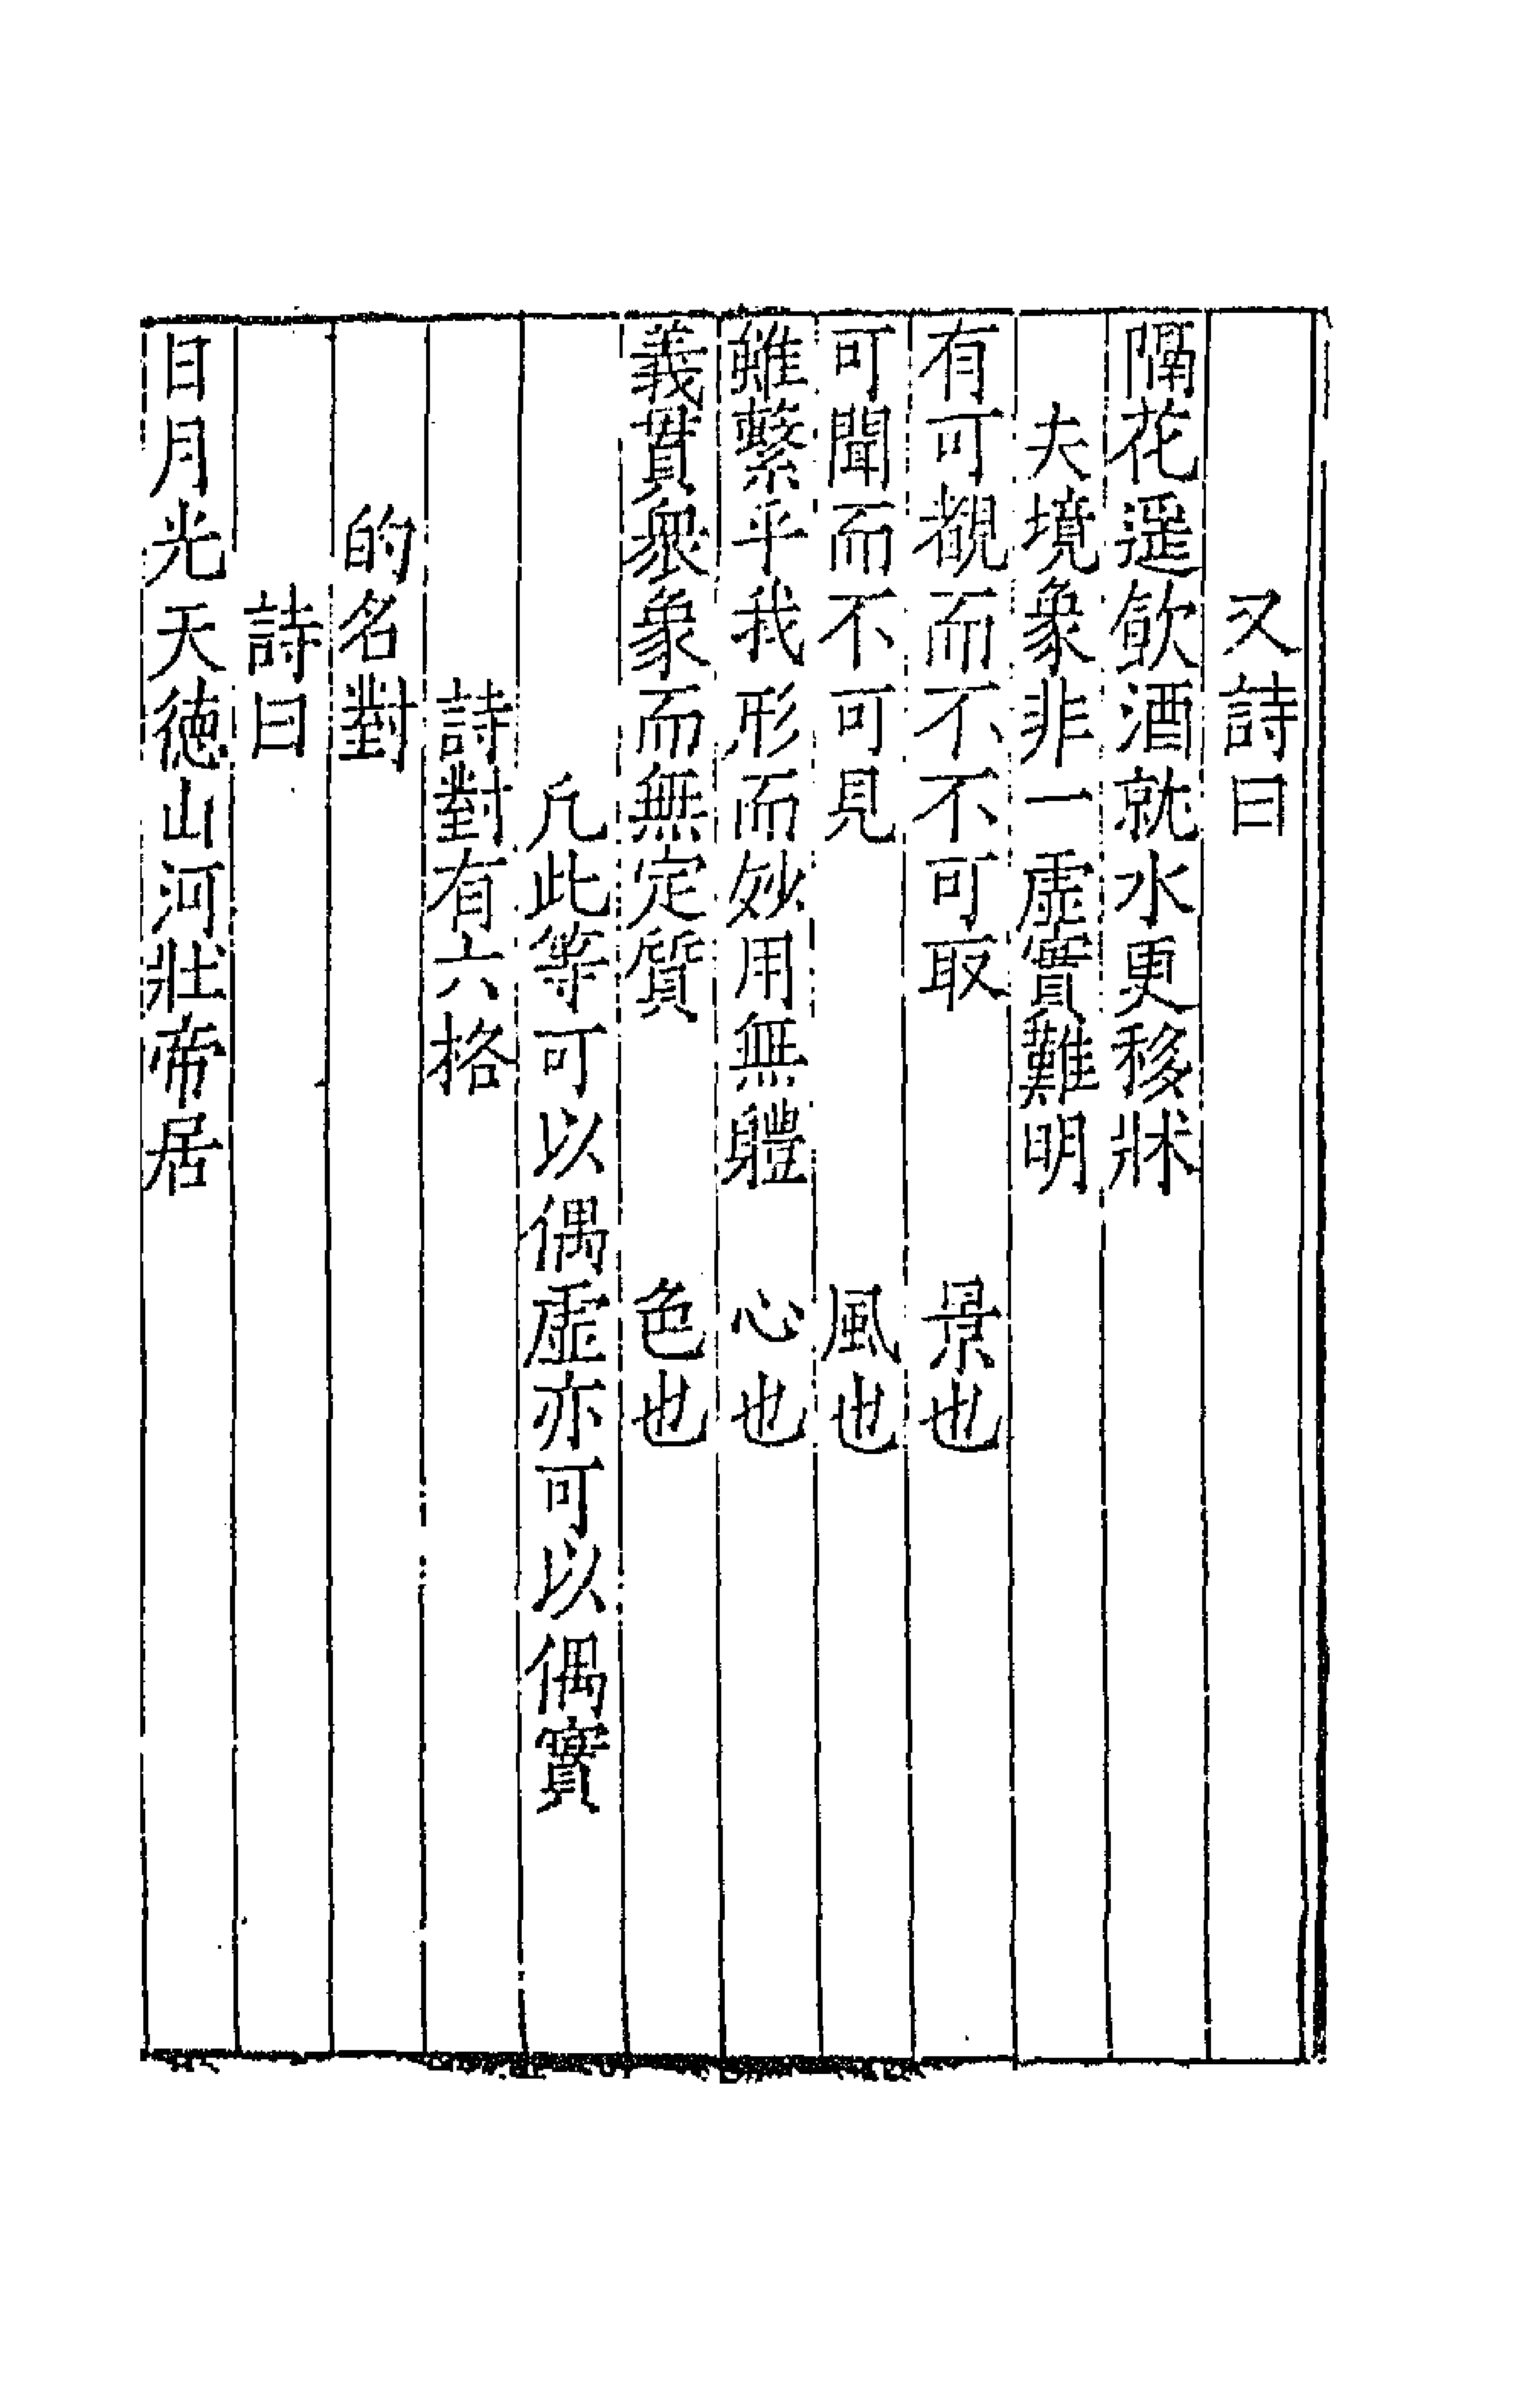 又詩曰
隔花遥飲酒就水更移牀
夫境象非一虛實難明
有可覩而不不可取 景也
可聞而不可見 風也
雖繫乎我形而妙用無軆 心也
義貫衆象而無定質 色也
凡此等可以偶虛亦可以偶實
詩對有六格
的名對
詩曰
日月光天德山河壯帝居